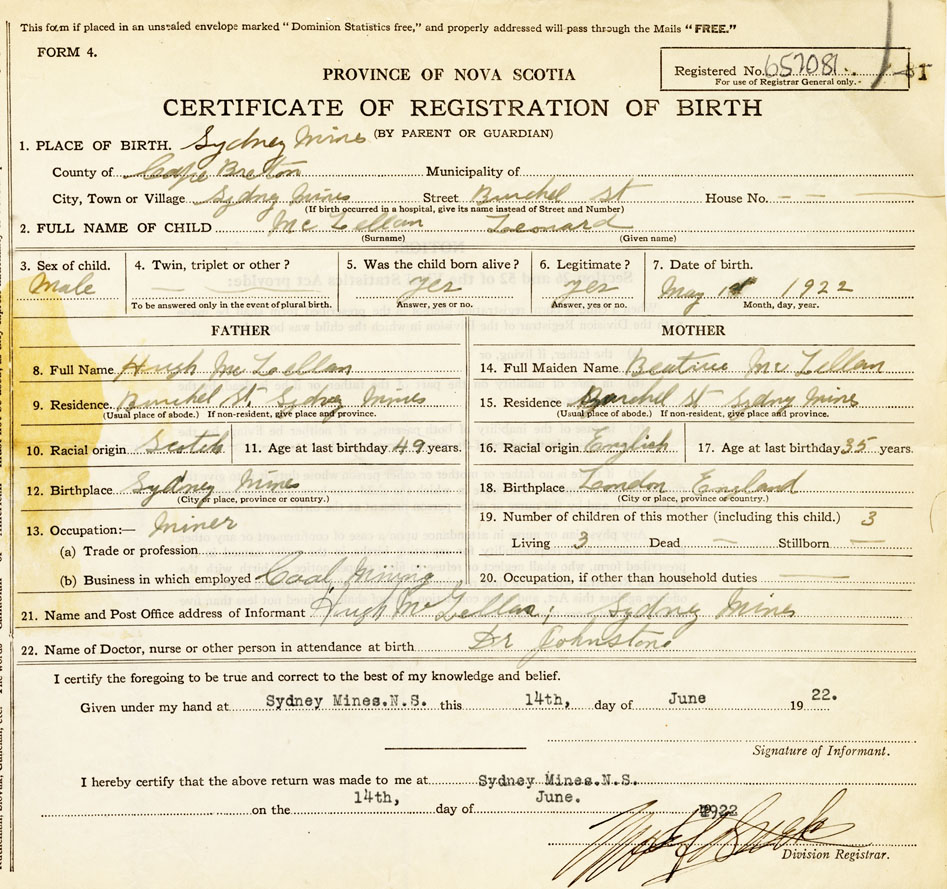 This form if placed in an unsealed envelope marked "Dominion Statistics free," and properly addressed will pass through the Mails "FREE."
FORM 4.
Registered No. 657081
For use of Registrar General only.
PROVINCE OF NOVA SCOTIA
CERTIFICATE OF REGISTRATION OF BIRTH
(BY PARENT OR GUARDIAN)
1. PLACE OF BIRTH. Sydney Mines
County of Cape Bretton Municipality of
City, Town or Village Sydney Mines Street Burchel St House No. —
(If birth occurred in a hospital, give its name instead of Street and Number)
2. FULL NAME OF CHILD Mc Lellan Leonard
(Surname) (Given name)
3. Sex of child. 4. Twin, triplet or other? 5. Was the child born alive? 6. Legitimate? 7. Date of birth.
Male — — yes yes May 1922
To be answered only in the event of plural birth. Answer, yes or no. Answer, yes or no. Month, day, year.
FATHER MOTHER
8. Full Name Hugh Mc Lellan 14. Full Maiden Name Beatrice Mc Lellan
9. Residence Burchel St Sydney Mines 15. Residence Burchel St Sydney Mines
(Usual place of abode.) If non-resident, give place and province. (Usual place of abode.) If non-resident, give place and province.
10. Racial origin Scotch 11. Age at last birthday 49 years. 16. Racial origin English 17. Age at last birthday 35 years.
12. Birthplace Sydney Mines 18. Birthplace London England
(City or place, province or country.) (City or place, province or country.)
13. Occupation:— Miner 19. Number of children of this mother (including this child.) 3
(a) Trade or profession Living 3 Dead — Stillborn —
(b) Business in which employed Coal Mining 20. Occupation, if other than household duties —
21. Name and Post Office address of Informant Hugh McLellan; Sydney Mines
22. Name of Doctor, nurse or other person in attendance at birth Dr Johnstone
I certify the foregoing to be true and correct to the best of my knowledge and belief.
Given under my hand at Sydney Mines.N.S. this 14th, day of June 1922.
Signature of Informant.
I hereby certify that the above return was made to me at Sydney Mines.N.S.
on the 14th, day of June. 1922
Division Registrar.